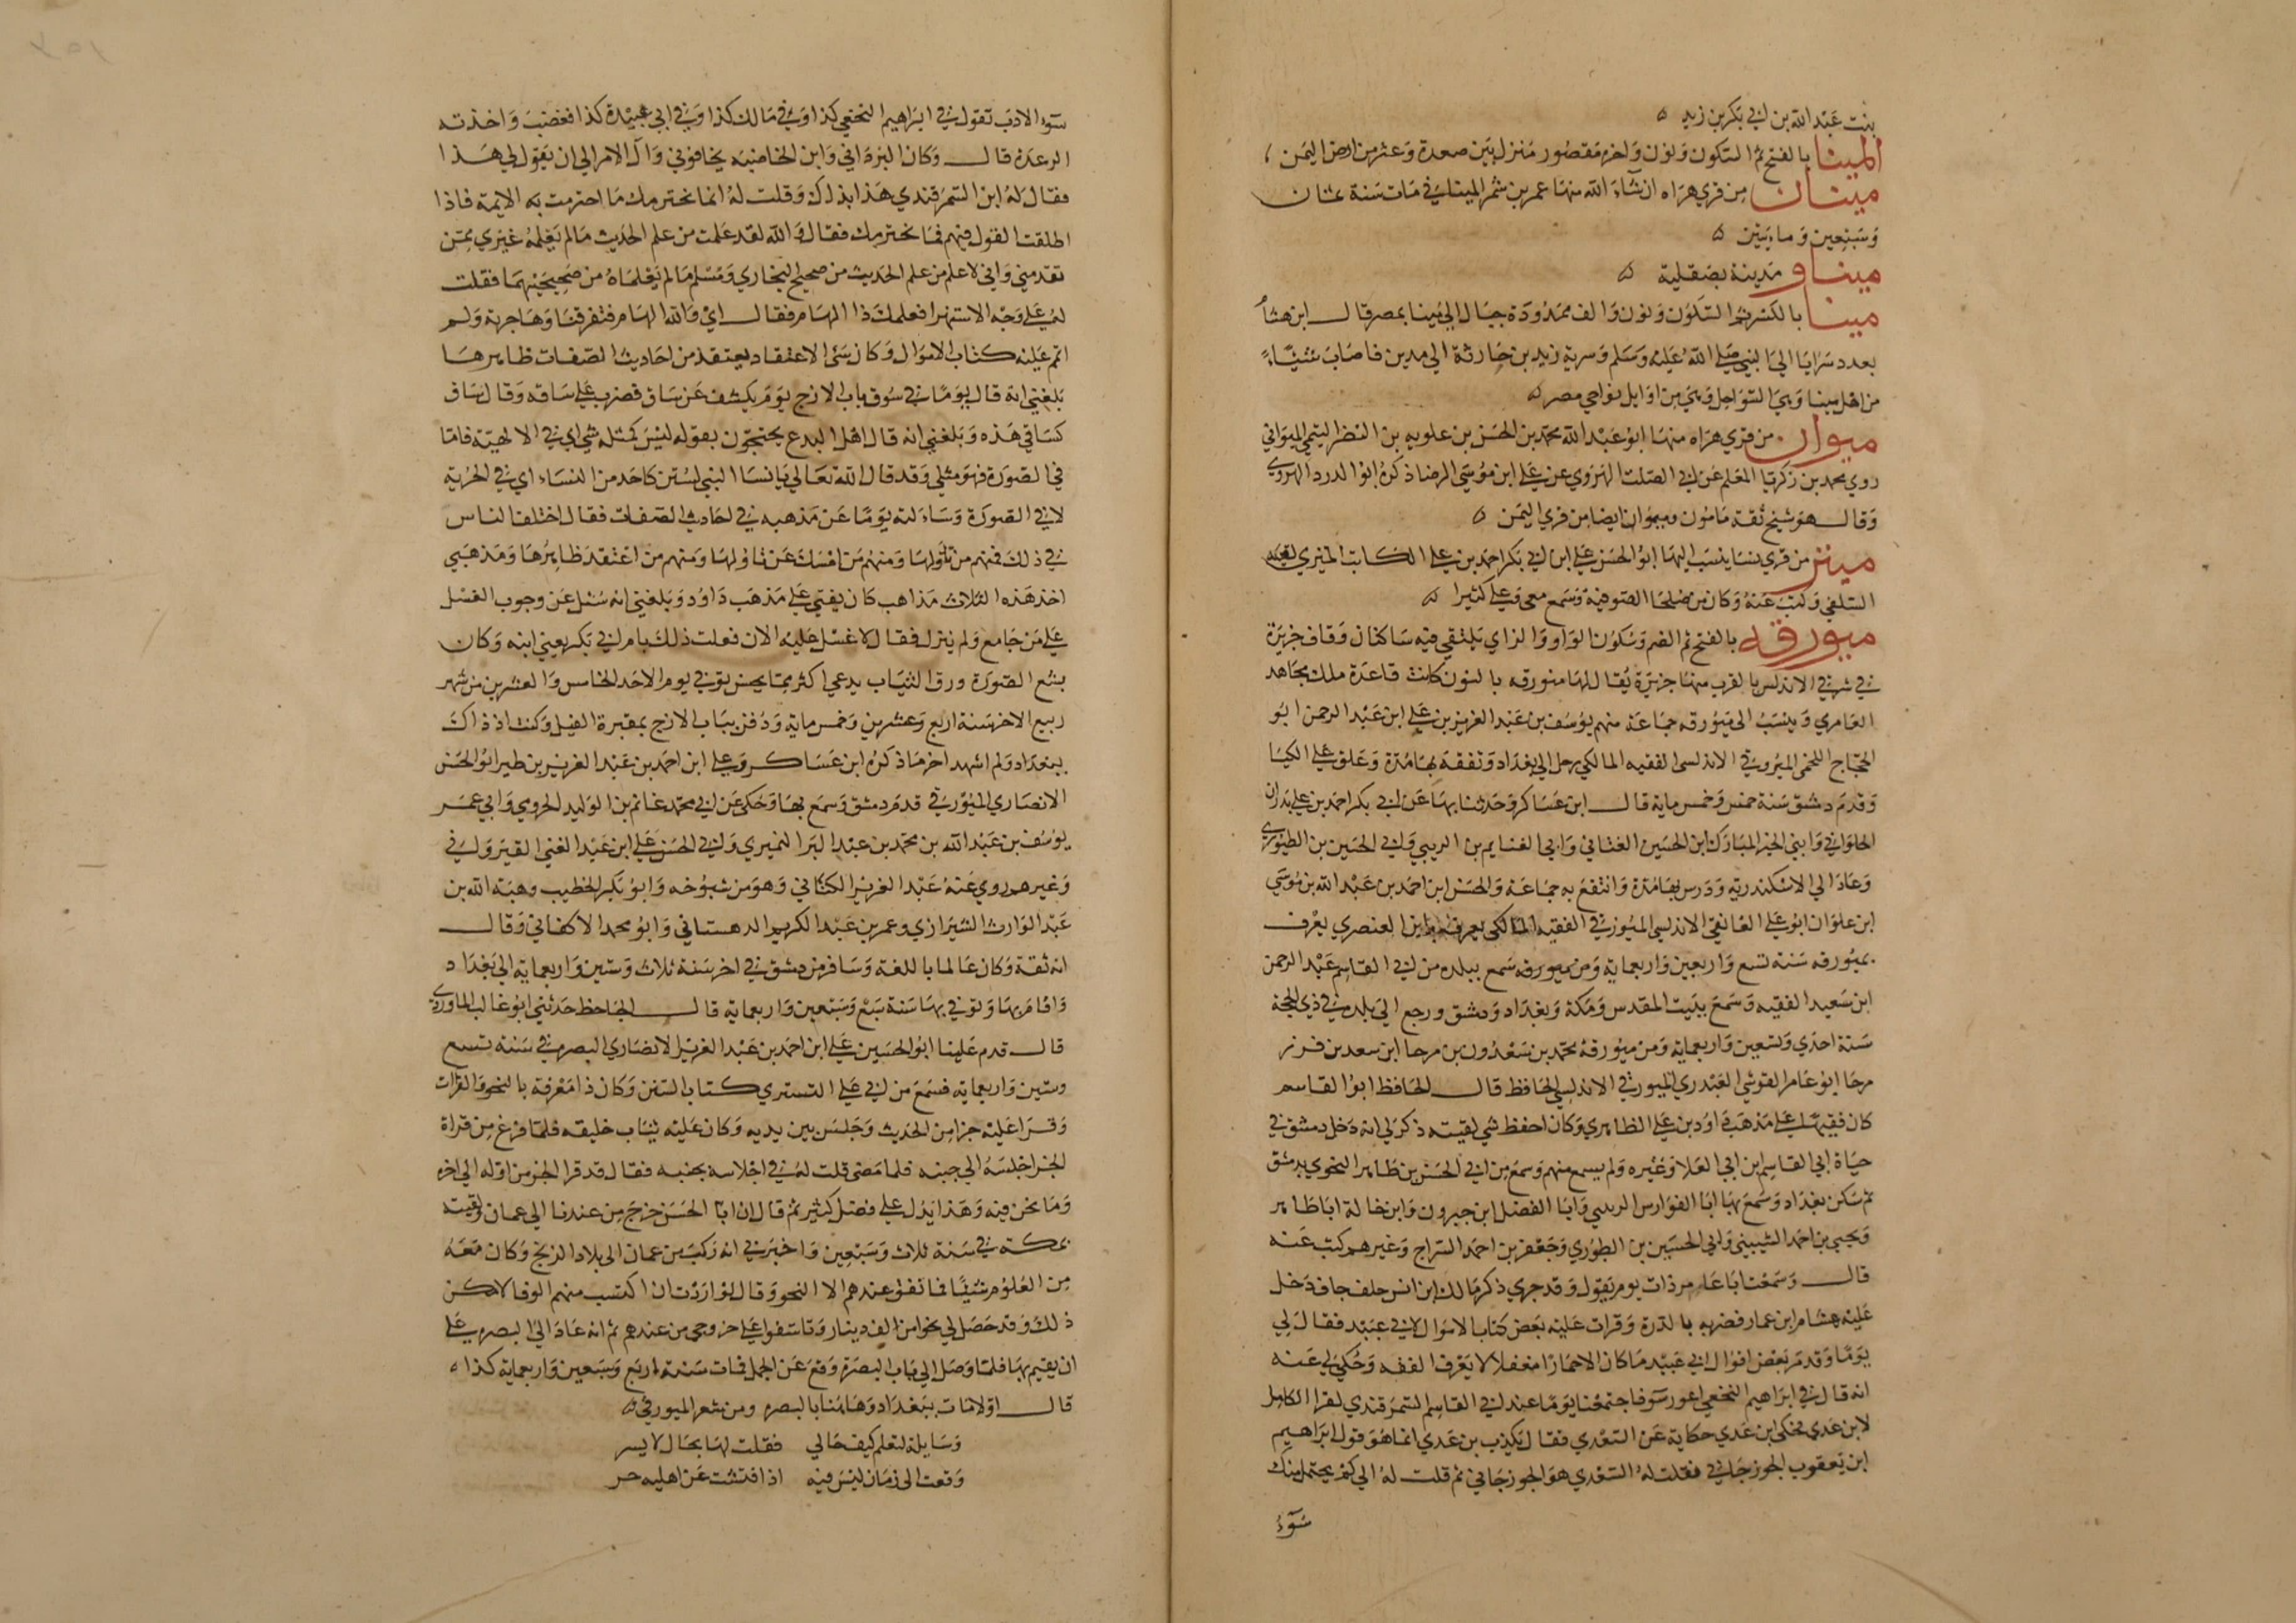 بنت عبد الله بن ابي بكر بن زيد ه
المينا بالفتح ثم السكون ونون واخره مقصور منزل بين صعدة وعثر من ارض اليمن
مينان من قري هراه ان شاء الله منها عمر بن شمر الميناني مات سنة ثمان
وسبعين وماءيتين ه
ميناو مدينة بصقلية ه
مينا بالكسر ثم السكون ونون والف ممدودة جبال ابي مينا بمصر قال ابن هشام
بعدد سرايا الي النبي صلي الله عليه وسلم وسرية زيد بن حارثة الي مدين فاصاب شيئا
من اهل مينا وهي السواحل وهي من اوايل نواحي مصر ه
ميوان من قري هراه منها ابو عبد الله محمد بن الحسن بن علويه بن النضر التيمي الميواني
روي محمد بن زكريا المعلم عن ابي الصلت الهروي عن علي ابن موسي الرضا ذكره ابو الدرد الهروي
وقال هو شيخ ثقة مامون وميوان ايضا من قري اليمن ه
ميهنز من قري نسا ينسب اليها ابو الحسن علي ابن ابي بكر احمد بن علي الكاتب لقيه
السلفي وكتب عنه وكان من صلحا الصوفية وسمع معي وعلي كثيرا ه
ميورقه بالفتح ثم الضم وسكون الواو والراي يلتقي فيه ساكنان وقاف جزيرة
في شرقي الاندلس بالقرب منها جزيرة يقال لها منورقه بالنون كانت قاعدة ملك مجاهد
العامري وينسب الي ميورقه جماعة منهم يوسف بن عبد العزيز بن علي ابن عبد الرحمن ابو
الحجاج اللخمي الميورقي الاندلسي الفقيه المالكي رحل الي بغداد وتفقه بها مدة وعلق علي الكيا
وقدم دمشق سنة خمس وخمس ماية قال ابن عساكر وحدثنا بها عن ابي بكر احمد بن علي بدران
الحلواني وابي الخير المبارك ابن الحسين الغساني وابي الغنايم بن وابي الحسين بن الطيوري
وعاد الي الاسكندرية ودرس بها مدة وانتفع به جماعة والحسن ابن احمد بن عبد الله بن موسي
ابن علوان ابو علي الغافقي الاندلسي الميورقي الفقيه المالكي يعرف بابن العنصري
بميورقه سنة تسع واربعين واربعماية ومن ميورقه سمع ببلده من ابي القاسم عبد الرحمن
ابن سعيد الفقيه وسمع ببيت المقدس ومكة وبغداد ودمشق ورجع الي بلده في ذي الحجة
سنة احدي وتسعين واربعماية ومن ميورقه محمد بن سعدون بن مرجا ابن سعد بن
مرجا ابو عامر القرشي العبدري الميورقي الاندلسي الحافظ قال الحافظ ابو القاسم
كان فقيها علي مذهب داود بن علي الظاهري وكان احفظ شي لقيته ذكر لي انه دخل دمشق في
حياة ابي القاسم ابن ابي العلا وغيره ولم يسمع منهم وسمع من ابي الحسن بن طاهر النحوي بدمشق
ثم سكن بغداد وسمع بها ابا الفوارس وابا الفضل ابن خيرون وابن خاله ابا طاهر
ويحيي بن احمد وابي الحسين بن الطيوري وجعفر بن احمد السراج وغيرهم كتب عنه
قال وسمعت ابا عامر ذات يوم يقول وقد جري ذكر مالك ابن انس جلف جاف دخل
عليه هشام ابن عمار فضربه بالدرة وقرات عليه بعض كتاب الاموال لابي عبيد فقال لي
يوما وقد مر بعض اقوال ابي عبيد ما كان الا حمارا مغفلا لا يعرف الفقه وحكي لي عنه
انه قال في ابراهيم النخعي اعور سوفا جتمعنا يوما عند ابي القاسم السمرقندي لقرا الكامل
لابن عدي فحكي ابن عدي حكاية عن السعدي فقال يكذب بن عدي انما هو قول ابراهيم
ابن يعقوب الجوزجاني فقلت له السعدي هو الجوزجاني ثم قلت له الي كم يحتمل منك
سوء
سوء الادب تقول في ابراهيم النخعي كذا وفي مالك كذا وفي ابي عبيدة كذا فغضب واخذته
الرعدة قال وكان البرداني وابن الخاضبه يخافوني وآل الامر الي ان يقول لي هذا
فقال له ابن السمرقندي هذا بذاك وقلت له انما نحترمك ما احترمت به الايمة فاذا
اطلقت القول فيهم فما نحترمك فقال والله لقد علمت من علم الحديث ما لم يعلمه غيري ممن
تقدمني واني لاعلم من علم الحديث من صحيح البخاري ومسلم ما لم يعلماه من صحيحيهما فقلت
له علي وجه الاستهزا فعلمك ذا الهام فقال اي والله الهام فتفرقنا وهاجرته ولم
اتم عليه كتاب الاموال وكان سئ الاعتقاد يعتقد من احاديث الصفات ظاهرها
بلغني انه قال يوما في سوق باب الازج يوم يكشف عن ساق فضرب علي ساقه وقال ساق
كساقي هذه وبلغني انه قال اهل البدع يحتجون بقوله ليس كمثله شي اي في الالهية فاما
في الصورة فهو مثلي وقد قال الله تعالي يا نسا النبي لستن كاحد من النساء اي في الحرية
لا في الصورة وساءلته يوما عن مذهبه في احاديث الصفات فقال اختلف الناس
في ذلك فمنهم من تاولها ومنهم من امسك عن تاولها ومنهم من اعتقد ظاهرها ومذهبي
احد هذه الثلاث مذاهب كان يفتي علي مذهب داود وبلغني انه سئل عن وجوب الغسل
علي من جامع ولم ينزل فقال لا غسل عليه الان فعلت ذلك بام ابي بكر يعني ابنه وكان
بشع الصورة ورق الثياب يدعي اكثر مما يحسن توفي يوم الاحد الخامس والعشرين من شهر
ربيع الاخر سنة اربع وعشرين وخمس ماية ودفن بباب الازج بمقبرة الفيل وكنت اذ ذاك
ببغداد ولم اشهد اخر ما ذكره ابن عساكر وعلي ابن احمد بن عبد العزيز بن طير ابو الحسن
الانصاري الميورقي قدم دمشق وسمع بها وحكي عن ابي محمد غانم بن الوليد المخزومي وابي عمر
يوسف بن عبد الله بن محمد بن عبد البر النميري وابي الحسن علي ابن عبد الغني القيرواني
وغيرهم روي عنه عبد العزيز الكتاني وهو من شيوخه وابو بكر الخطيب وهبة الله بن
عبد الوارث الشيرازي وعمر بن عبد الكريم الدهستاني وابو محمد الاكفاني وقال
انه ثقة وكان عالما باللغة وسافر من دمشق في اخر سنة ثلاث وستين واربعماية الي بغداد
واقام بها وتوفي بها سنة سبع وسبعين واربعماية قال الحافظ حدثني ابو غالب الماوردي
قال قدم علينا ابو الحسين علي ابن احمد بن عبد العزيز الانصاري البصره في سنة تسع
وستين واربعماية فسمع من ابي علي التستري كتاب السنن وكان ذا معرفة بالنحو والقرات
وقرا عليه جزا من الحديث وجلس بين يديه وكان عليه ثياب خليقه فلما فرغ من قراة
الجزا جلسه الي جنبه فلما مضي قلت له في اجلاسه بجنبه فقال قد قرا الجزو من اوله الي اخره
وما لحن فيه وهذا يدل علي فضل كثير ثم قال ان ابا الحسن خرج من عندنا الي عمان ولقيته
بمكة في سنة ثلاث وسبعين واخبرني انه ركب من عمان الي بلاد الزنج وكان معه
من العلوم شيئا فما نفق عندهم الا النحو وقال لو اردت ان اكتسب منهم الوفا لامكن
ذلك وقد حصل لي نحو من الف دينار وتاسفوا علي خروجي من عندهم ثم انه عاد الي البصره علي
ان يقيم بها فلما وصل الي باب البصرة وقع عن الجمل فمات سنة اربع وسبعين واربعماية كذا ه
قال اولا مات ببغداد وهاهنا بالبصره ومن شعر الميورقي ه
وسايلة لتعلم كيف حالي فقلت لها بحال لا يسر
وقعت الي زمان ليس فيه اذا فتشت عن اهليه حر